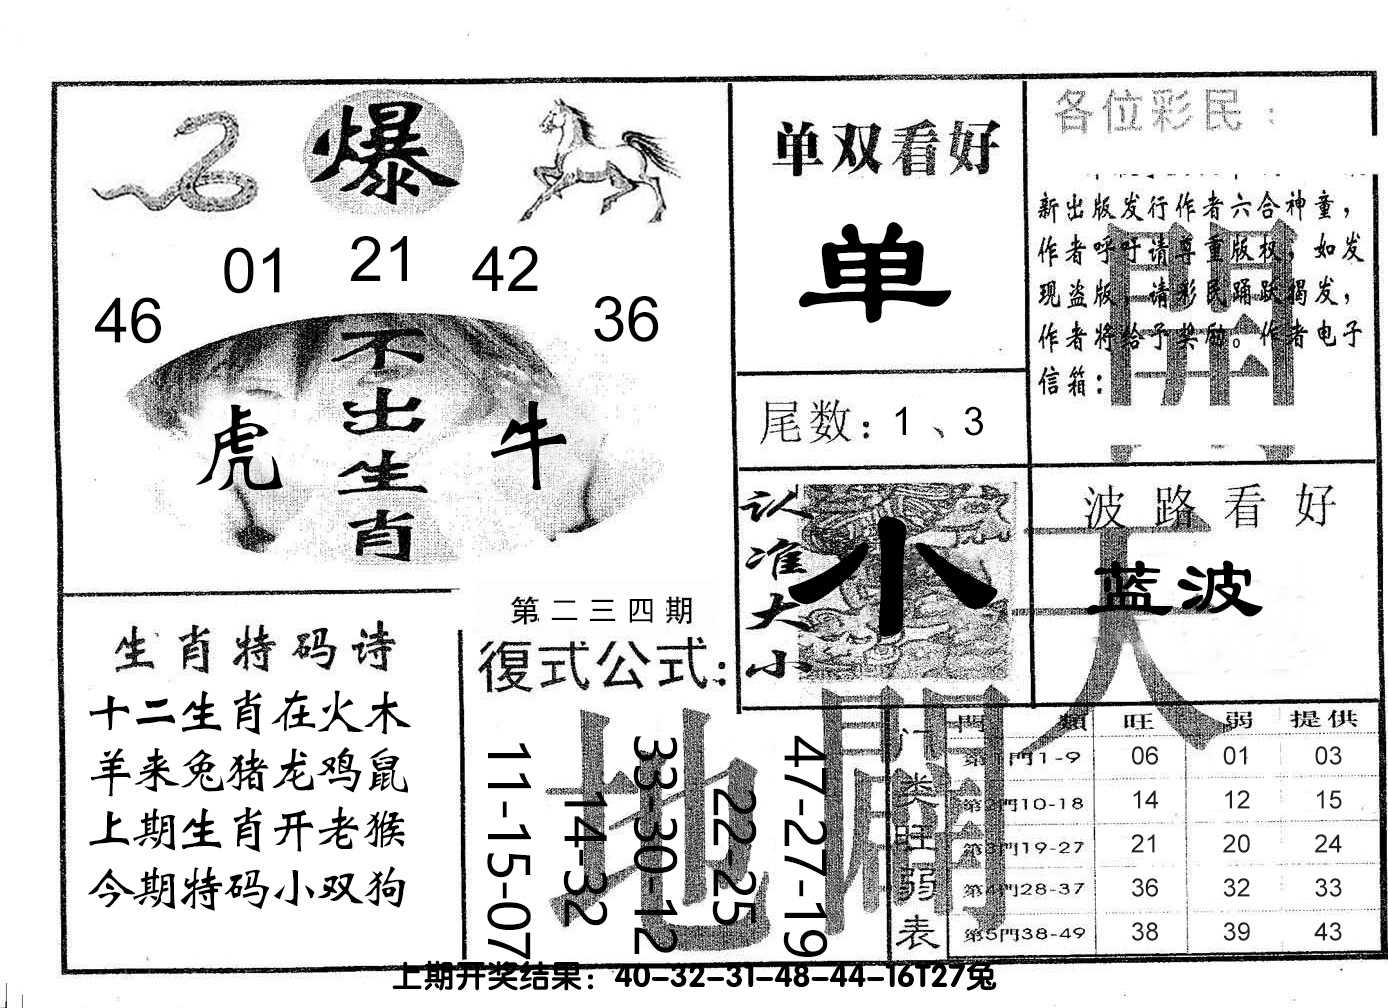 爆
01 21 42
46 36
不出生肖
虎 牛
单双看好
单
尾数：1、3
各位彩民：
新出版发行作者六合神童，
作者呼吁请尊重版权，如发
现盗版，请彩民踊跃揭发，
作者将给予奖励。作者电子
信箱：
開
认准大小
小
波路看好
蓝波
天
生肖特码诗
十二生肖在火木
羊来兔猪龙鸡鼠
上期生肖开老猴
今期特码小双狗
第二三四期
復式公式：
11-15-07
14-32
33-30-12
22-25
47-27-19
地
閙
门类旺弱表
門 類 旺 弱 提供
第1門1-9 06 01 03
第2門10-18 14 12 15
第3門19-27 21 20 24
第4門28-37 36 32 33
第5門38-49 38 39 43
上期开奖结果：40-32-31-48-44-16T27兔